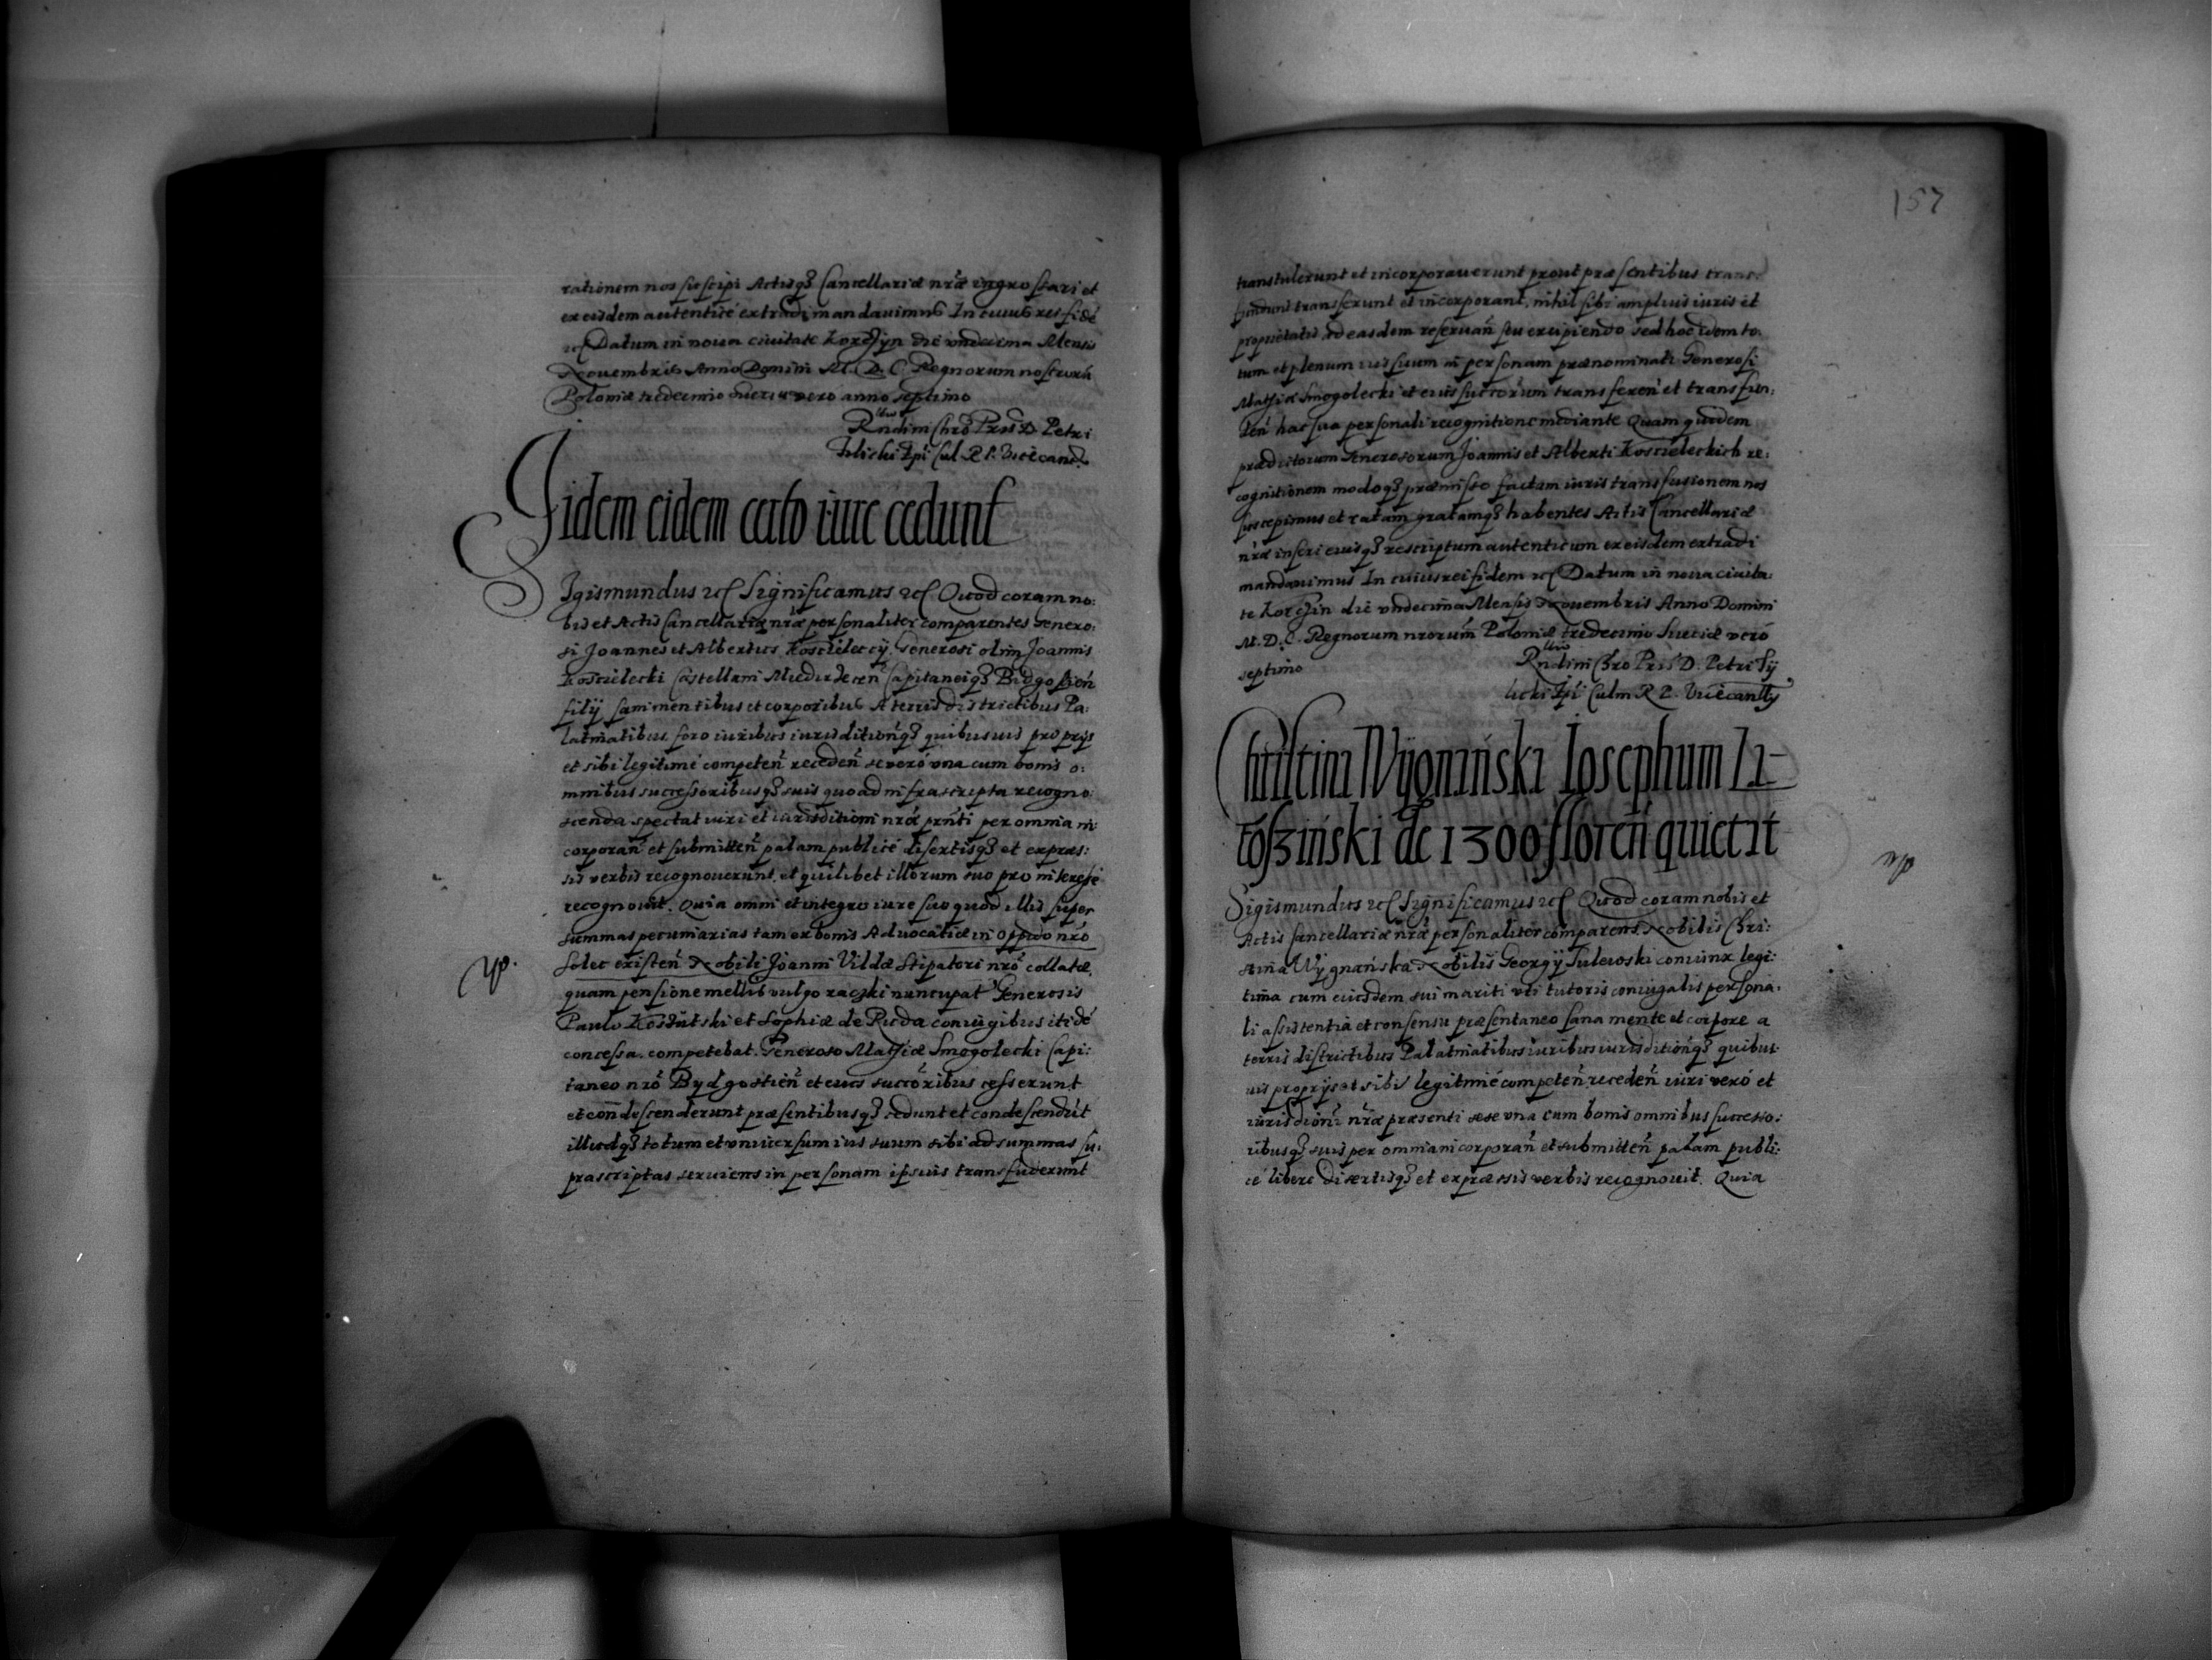 rationem nos suscipi Actisq3 Cancellariæ nræ ingrossari et
ex eisdem autenticé extradi mandauimus In cuius rei fidé
Datum in noua ciuitate Korczyn die vndecima Mensis
Nouembris Anno Domini M. D. C. Regnorum nostrorū
Poloniæ tredecimo Sueciæ vero anno septimo
Rndini Chro Pris D. Petri
Tilicki Epi Cul R P. Vicecanc.
Iidem eidem certo iure cedunt
Sigismundus etc Significamus etc Quod coram no:
bis et Actis Cancellariæ nræ personaliter comparentes Genero:
si Joannes et Albertus Koscieleccÿ. Generosi olim Joannis
Koscielecki Castellani Miedzirzecen̄ Capitaneiq3 Bidgostien̄
filÿ sani mentibus et corporibus A terris districtibus Pa:
latinatibus foro iuribus iurisditionq3 quibusuis proprÿs
et sibi legitimé competen̄ receden̄ se veró vna cum bonis o:
mnibus successoribusq3 suis quo ad infrascripta recogno:
scenda spectat iuri et iurisditioni nræ prn̄ti per omnia in:
corporan̄ et submitten̄ palam publicé disertisq3 et expres:
sis verbis recognouerunt. et quilibet illorum suo pro interesse
recognouit. Quia omni et integro iure suo quod illis super
summas pecuniarias tam ex bonis Aduocatiæ in oppido nrō
Solec existen̄ Nobili Joanni Vildæ Stipatori nrō collatæ.
quam pensione mellis vulgo raczki nuncupat Generosis
Paulo et Sophiæ de Ruda coniugibus itidé
concessa. competebat. Generoso Mathiæ Smogolecki Capi:
taneo nrō Bydgostien̄ et eius succr̄oribus cesserunt
et con̄descenderunt præsentibusq3 cedunt et condescendūt
illudq3 totum et vniuersum ius suum sibi ad summas su:
prascriptas seruiens in personam ipsius transfuderunt
yp.
157
transtulerunt et incorporauerunt prout præsentibus trans:
fundunt transferunt et incorporant, nihil sibi amplius iuris et
proprietatis ad easdem reseruan̄ seu excipiendo sed hoc idem to:
tum et plenum ius suum in personam prænominati Generosi
Mathiæ Smogolecki et eius succr̄orum transferen̄ et transfun:
den̄ hac sua personali recognitione mediante Quam quidem
prædictorum Generosorum Joannis et Alberti Koscieleckich re:
cognitionem modoq3 præmisso factam iuris transfusionem nos
suscepimus et ratam gratamq3 habentes Actis Cancellariæ
nræ inseri eiusq3 rescriptum autenticum ex eisdem extradi
mandauimus In cuius rei fidem etc Datum in noua ciuita:
te Korczin die vndecima Mensis Nouembris Anno Domini
M. D. C. Regnorum nrorum Poloniæ tredecimo Sueciæ veró
septimo
Rndini Chro Pris D. Petri Tÿ
licki Epi Culm R P. Vicecanclly
Christina Wÿgninski Josephum Li-
tosziński de 1300 floren̄ quietat
Sigismundus etc Significamus etc Quod coram nobis et
Actis Cancellariæ nræ personaliter comparens Nobilis Chri:
stina Wÿgnańska Nobilis Georgÿ Tulewski coniunx legi:
tima cum eiusdem sui mariti vti tutoris coniugalis persona:
li assistentia et consensu præsentaneo sana mente et corpore a
terris districtibus Palatinatibus iuribus iurisditionq3 quibus
uis proprÿs et sibi legitimé competen̄ receden̄ iuri veró et
iurisdioni nræ præsenti sese vna cum bonis omnibus successo:
ribusq3 suis per omnia incorporan̄ et submitten̄ palam publi:
cé liberé disertisq3 et expræssis verbis recognouit. Quia